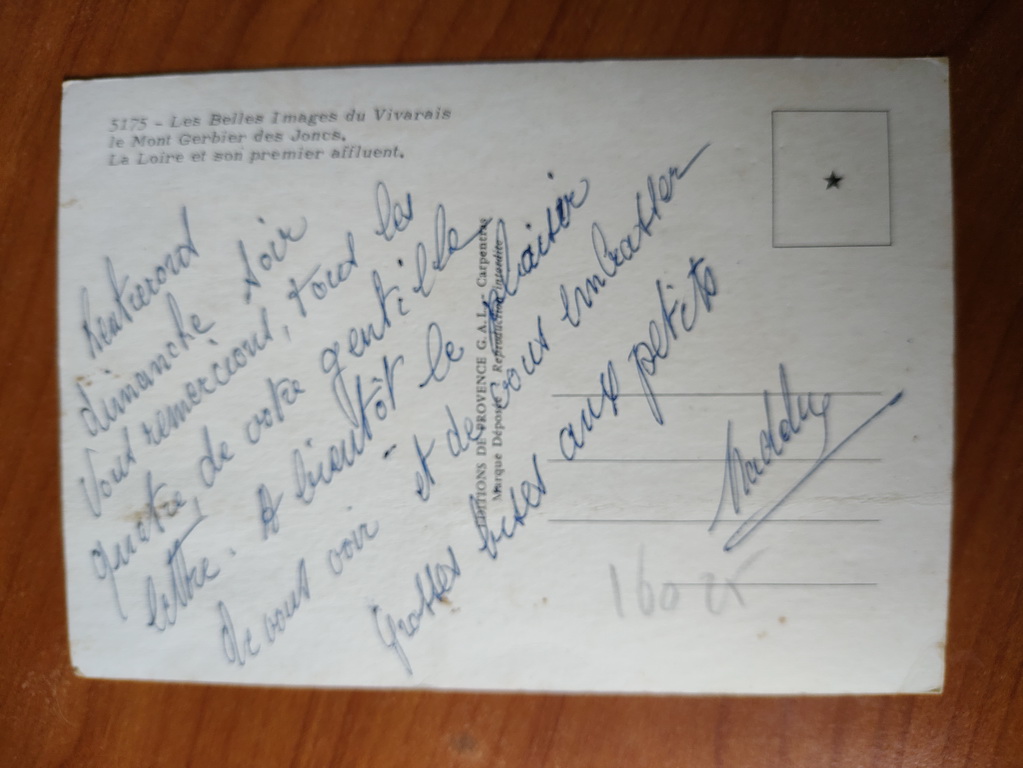 5175 - Les Belles Images du Vivarais
le Mont Gerbier des Joncs.
La Loire et son premier affluent.
Rentrerons
dimanche soir
Vous remercions, tous les
quatre, de votre gentille
lettre. A bientôt le plaisir
de vous voir et de vous embrasser
Grosses bises aux petits
EDITIONS DE PROVENCE G.A.L. - Carpentras
Marque Déposée - Reproduction interdite
160